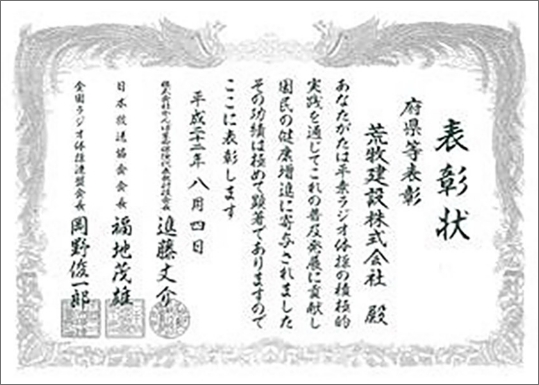 表彰状
府県等表彰
荒牧建設株式会社 殿
あなたがたは平素ラジオ体操の積極的
実践を通じてこれの普及発展に貢献し
国民の健康増進に寄与されました
その功績は極めて顕著でありますので
ここに表彰します
平成二十二年八月四日
株式会社かんぽ生命保険代表執行役会長 進藤丈介
日本放送協会会長 福地茂雄
全国ラジオ体操連盟会長 岡野俊一郎